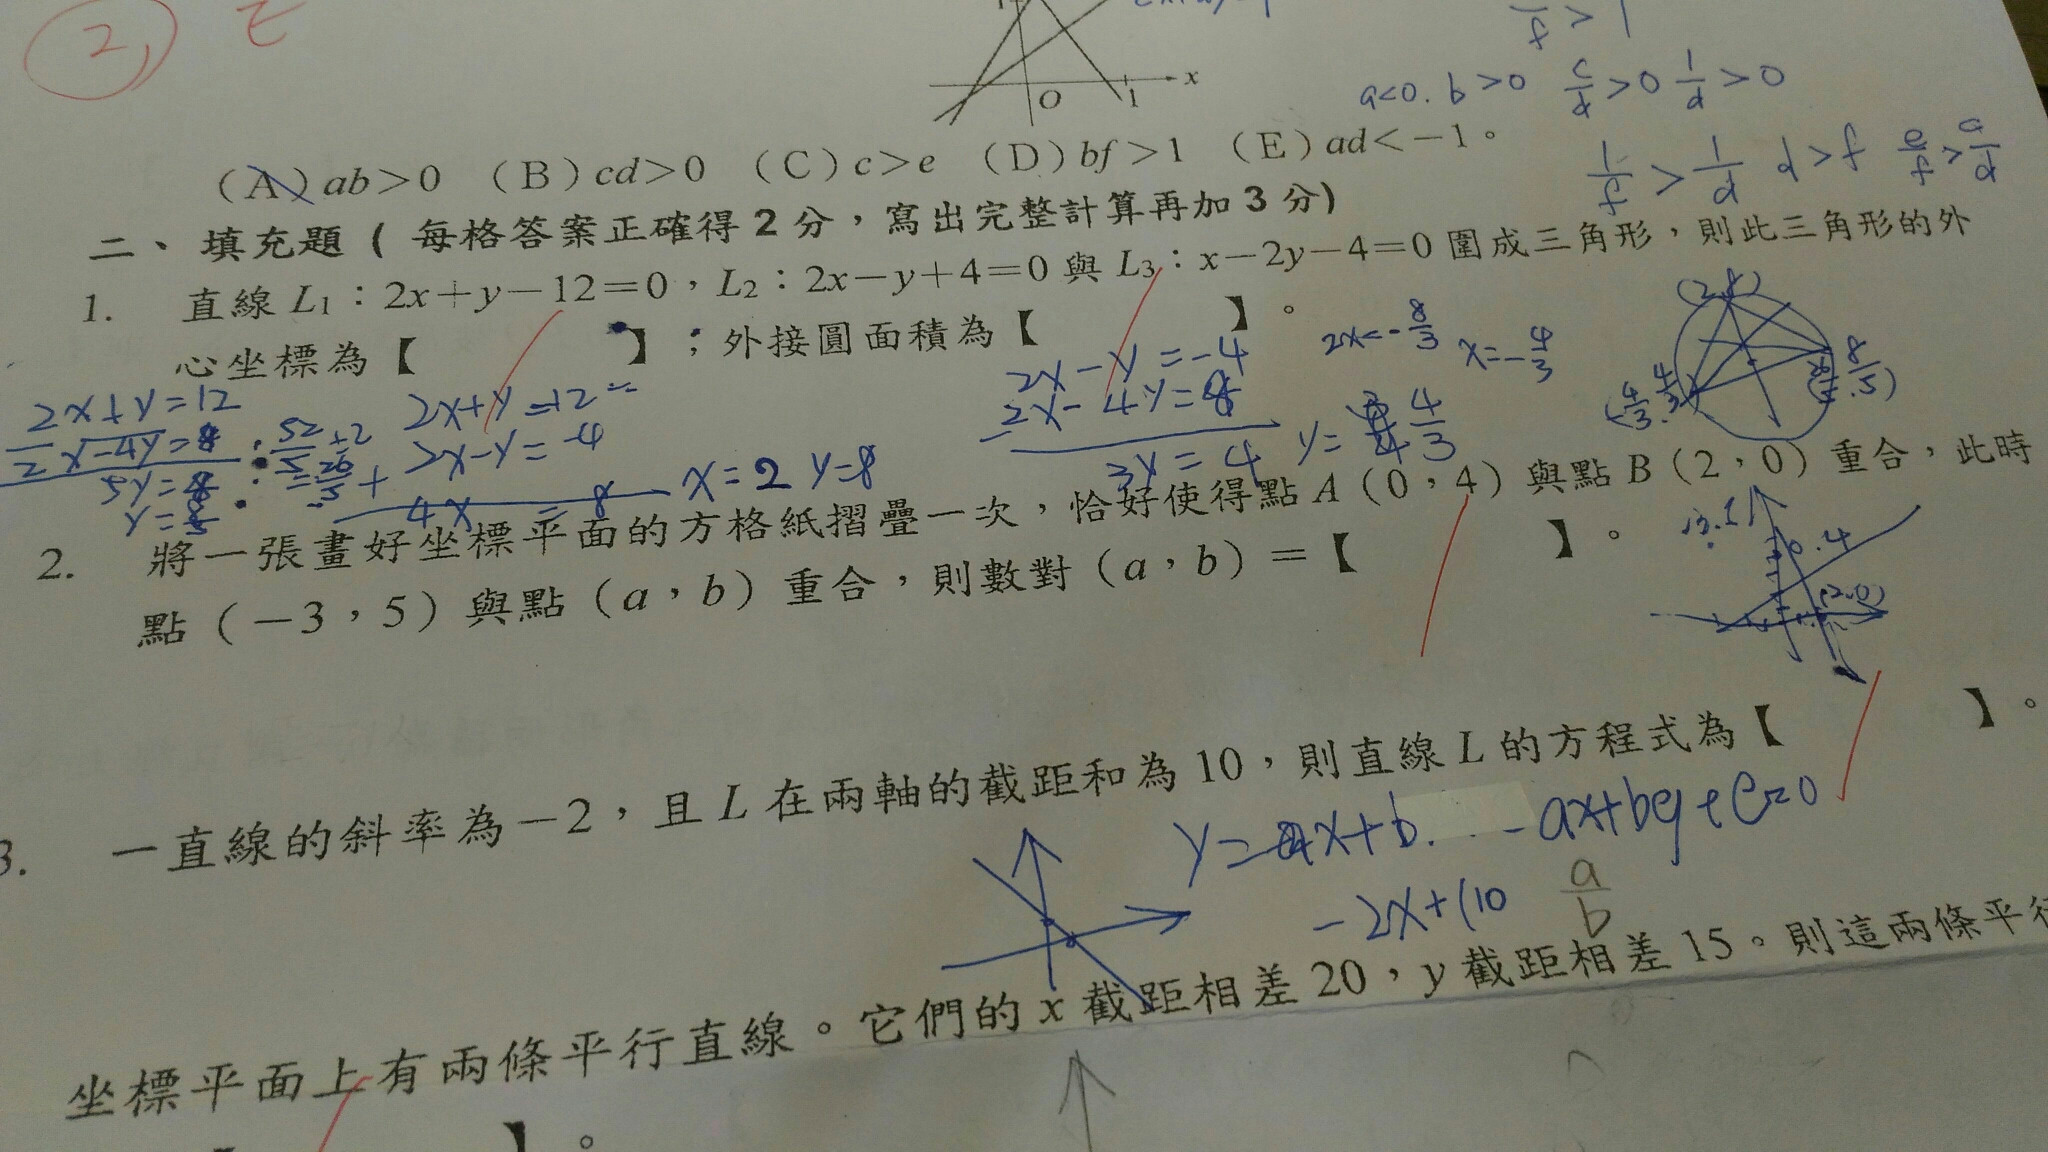 2,
1
O
x
a<0. b>0 c/d>0 1/d>0
1/f > 1/d d>f
(A) ab>0 (B) cd>0 (C) c>e (D) bf>1 (E) ad<-1。
二、填充題 ( 每格答案正確得 2 分,寫出完整計算再加 3 分)
1. 直線 L1:2x+y-12=0,L2:2x-y+4=0 與 L3:x-2y-4=0 圍成三角形,則此三角形的外
心坐標為【 】;外接圓面積為【 】。
2x+y=12
2x-4y=8
2x+y=12
2x-y=-4
4x = 8
x=2 y=8
2x-y=-4
2x-4y=8
3y=4 y=4/3
2x=-8/3 x=-4/3
(2.8)
2. 將一張畫好坐標平面的方格紙摺疊一次,恰好使得點 A(0,4)與點 B(2,0)重合,此時
點(-3,5)與點(a,b)重合,則數對(a,b)=【 】。
0.4
(2.0)
3. 一直線的斜率為-2,且 L 在兩軸的截距和為 10,則直線 L 的方程式為【 】。
ax+by+c=0
-2x+(10
a/b
坐標平面上有兩條平行直線。它們的 x 截距相差 20,y 截距相差 15。則這兩條平行
【 】。